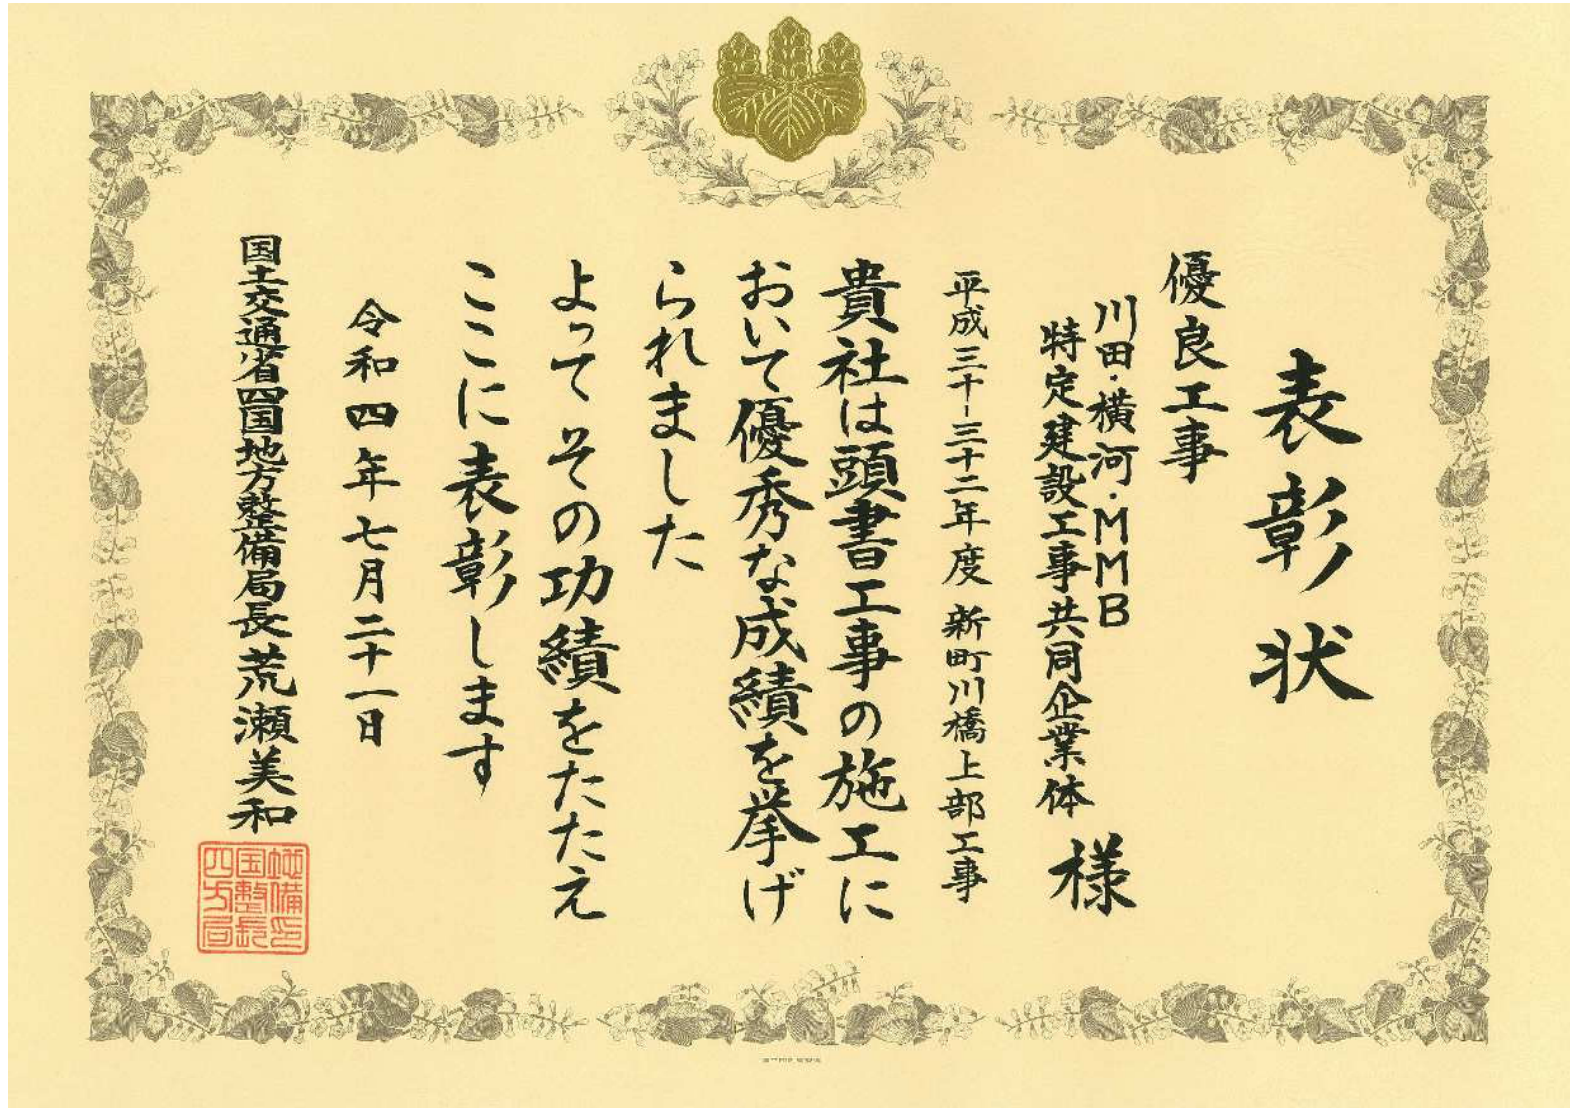 表彰状
優良工事
川田・横河・MMB
特定建設工事共同企業体 様
平成三十-三十二年度 新町川橋上部工事
貴社は頭書工事の施工に
おいて優秀な成績を挙げ
られました
よってその功績をたたえ
ここに表彰します
令和四年七月二十一日
国土交通省四国地方整備局長荒瀬美和